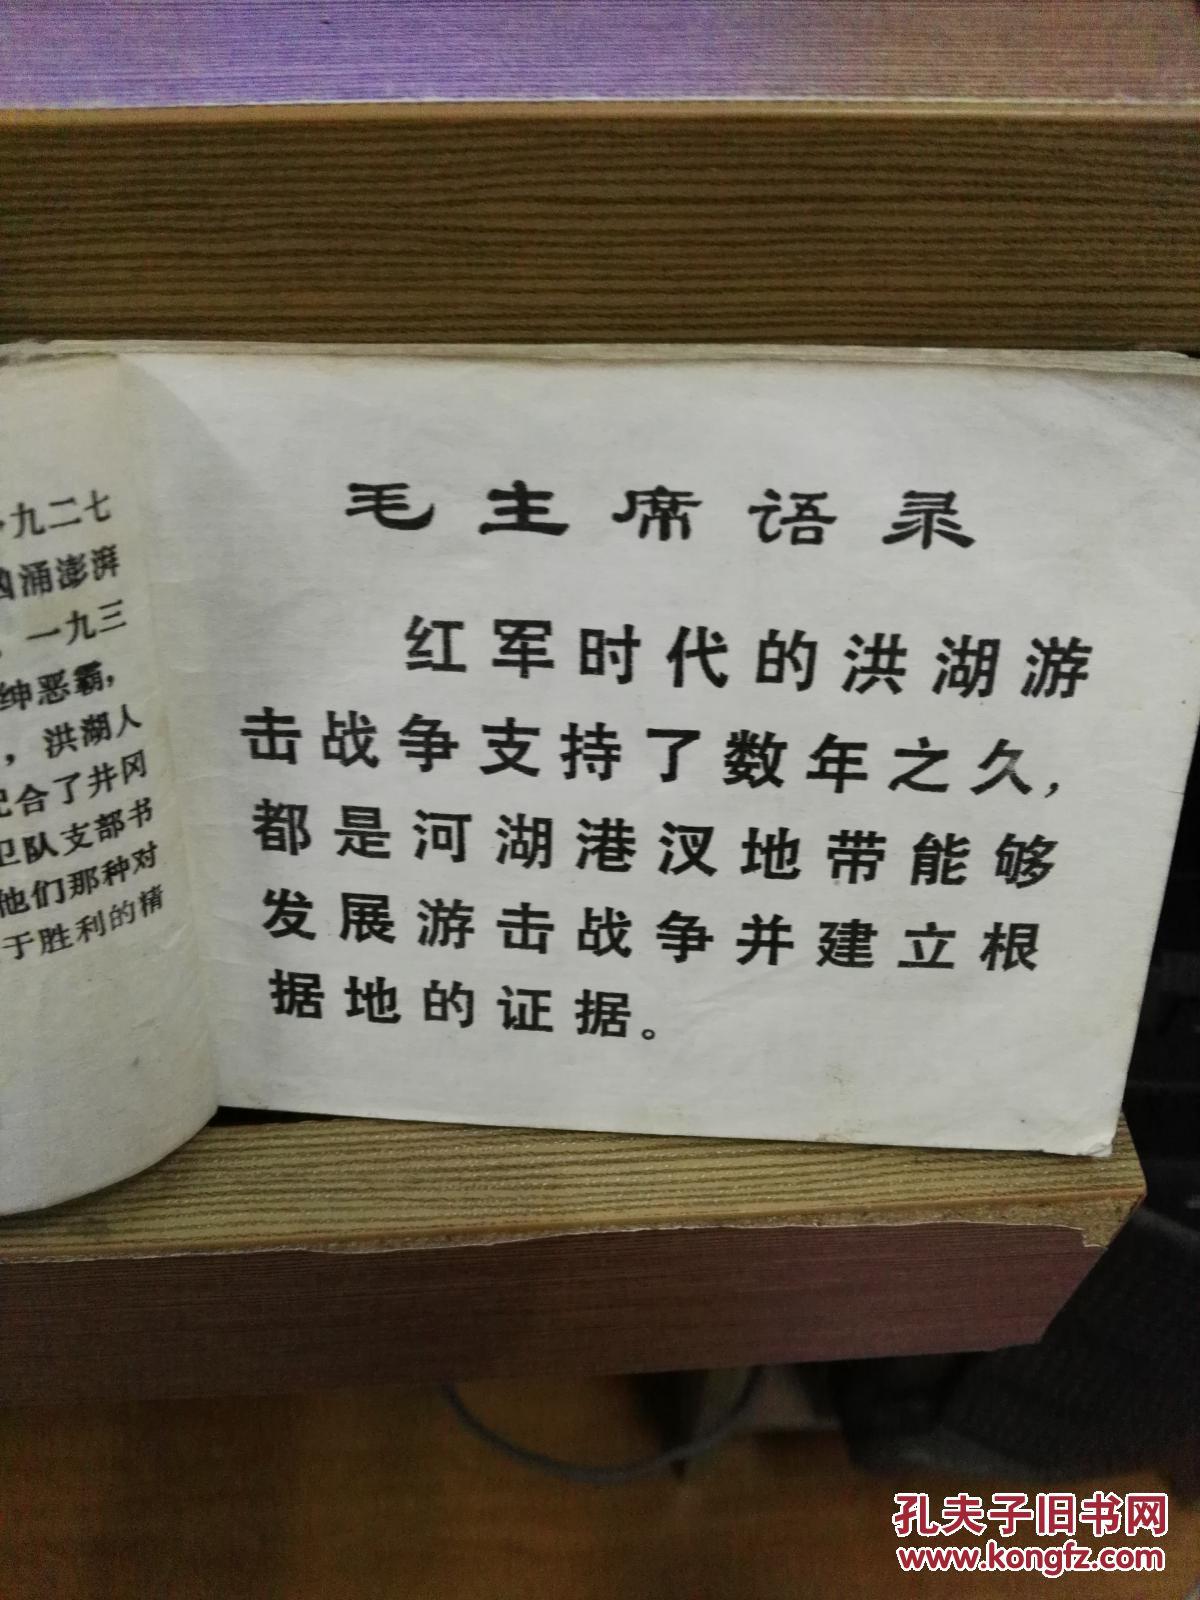 九二七
涌澎湃
一九三
绅恶霸，
，洪湖人
配合了井冈
卫队支部书
他们那种对
于胜利的精
毛主席语录
红军时代的洪湖游
击战争支持了数年之久，
都是河湖港汊地带能够
发展游击战争并建立根
据地的证据。
孔夫子旧书网
www.kongfz.com